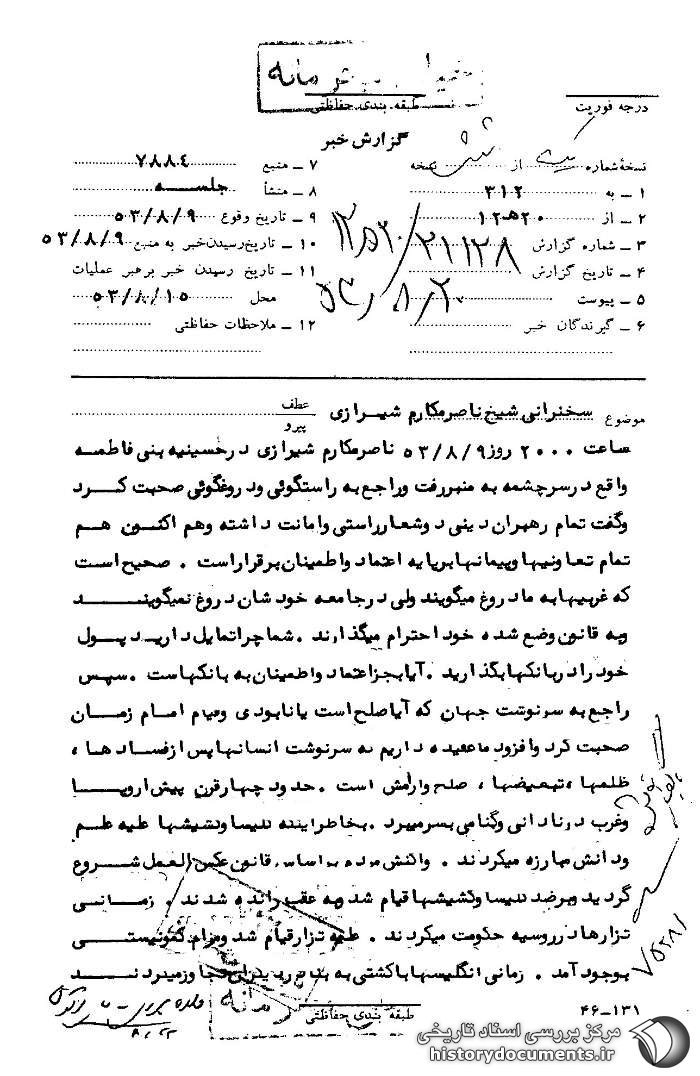 خیلی محرمانه
طبقه بندی حفاظتی
درجه فوریت
گزارش خبر
نسخهٔ شماره یک از شش نسخه
۱ ـ به ۳۱۲
۲ ـ از ۲۰ ه‍ ۱۲
۳ ـ شماره گزارش ۲۱۱۲۸/
۴ ـ تاریخ گزارش
۵ ـ پیوست
۶ ـ گیرندگان خبر
۷ ـ منبع ۷۸۸۴
۸ ـ منشأ جلسه
۹ ـ تاریخ وقوع ۵۳/۸/۹
۱۰ ـ تاریخ رسیدن خبر به منبع ۵۳/۸/۹
۱۱ ـ تاریخ رسیدن خبر برهبر عملیات
محل ۵۳/۸/۱۵
۱۲ ـ ملاحظات حفاظتی
موضوع سخنرانی شیخ ناصر مکارم شیرازی
عطف
پیرو
ساعت ۲۰۰۰ روز ۵۳/۸/۹ ناصر مکارم شیرازی در حسینیه بنی فاطمه
واقع در سرچشمه به منبر رفت و راجع به راستگوئی و دروغگوئی صحبت کرد
و گفت تمام رهبران دینی دو شعار راستی و امانت داشته و هم اکنون هم
تمام تعاونیها و پیمانها بر پایه اعتماد و اطمینان برقرار است . صحیح است
که غربیها به ما دروغ میگویند ولی در جامعه خودشان دروغ نمیگویند
و به قانون وضع شده خود احترام میگذارند . شما چرا تمایل دارید پول
خود را در بانکها بگذارید . آیا بجز اعتماد و اطمینان به بانکهاست . سپس
راجع به سرنوشت جهان که آیا صلح است یا نابودی و قیام امام زمان
صحبت کرد و افزود ما عقیده داریم که سرنوشت انسانها پس از فسادها ،
ظلمها ، تبعیضها ، صلح و آرامش است . حدود چهار قرن پیش اروپا
و غرب در نادانی و گمنامی بسر میبرد . بخاطر اینکه کلیسا و کشیشها علیه علم
و دانش مبارزه میکردند . واکنش مردم بر اساس قانون عکس العمل شروع
گردید و بر ضد کلیسا و کشیشها قیام شد و به عقب رانده شدند . زمانی
تزارها در روسیه حکومت میکردند . علیه تزار قیام شد و مرام کمونیستی
بوجود آمد . زمانی انگلیسها با کشتی به بنادر
طبقه بندی حفاظتی
۴۶-۱۳۱
مرکز بررسی اسناد تاریخی
historydocuments.ir